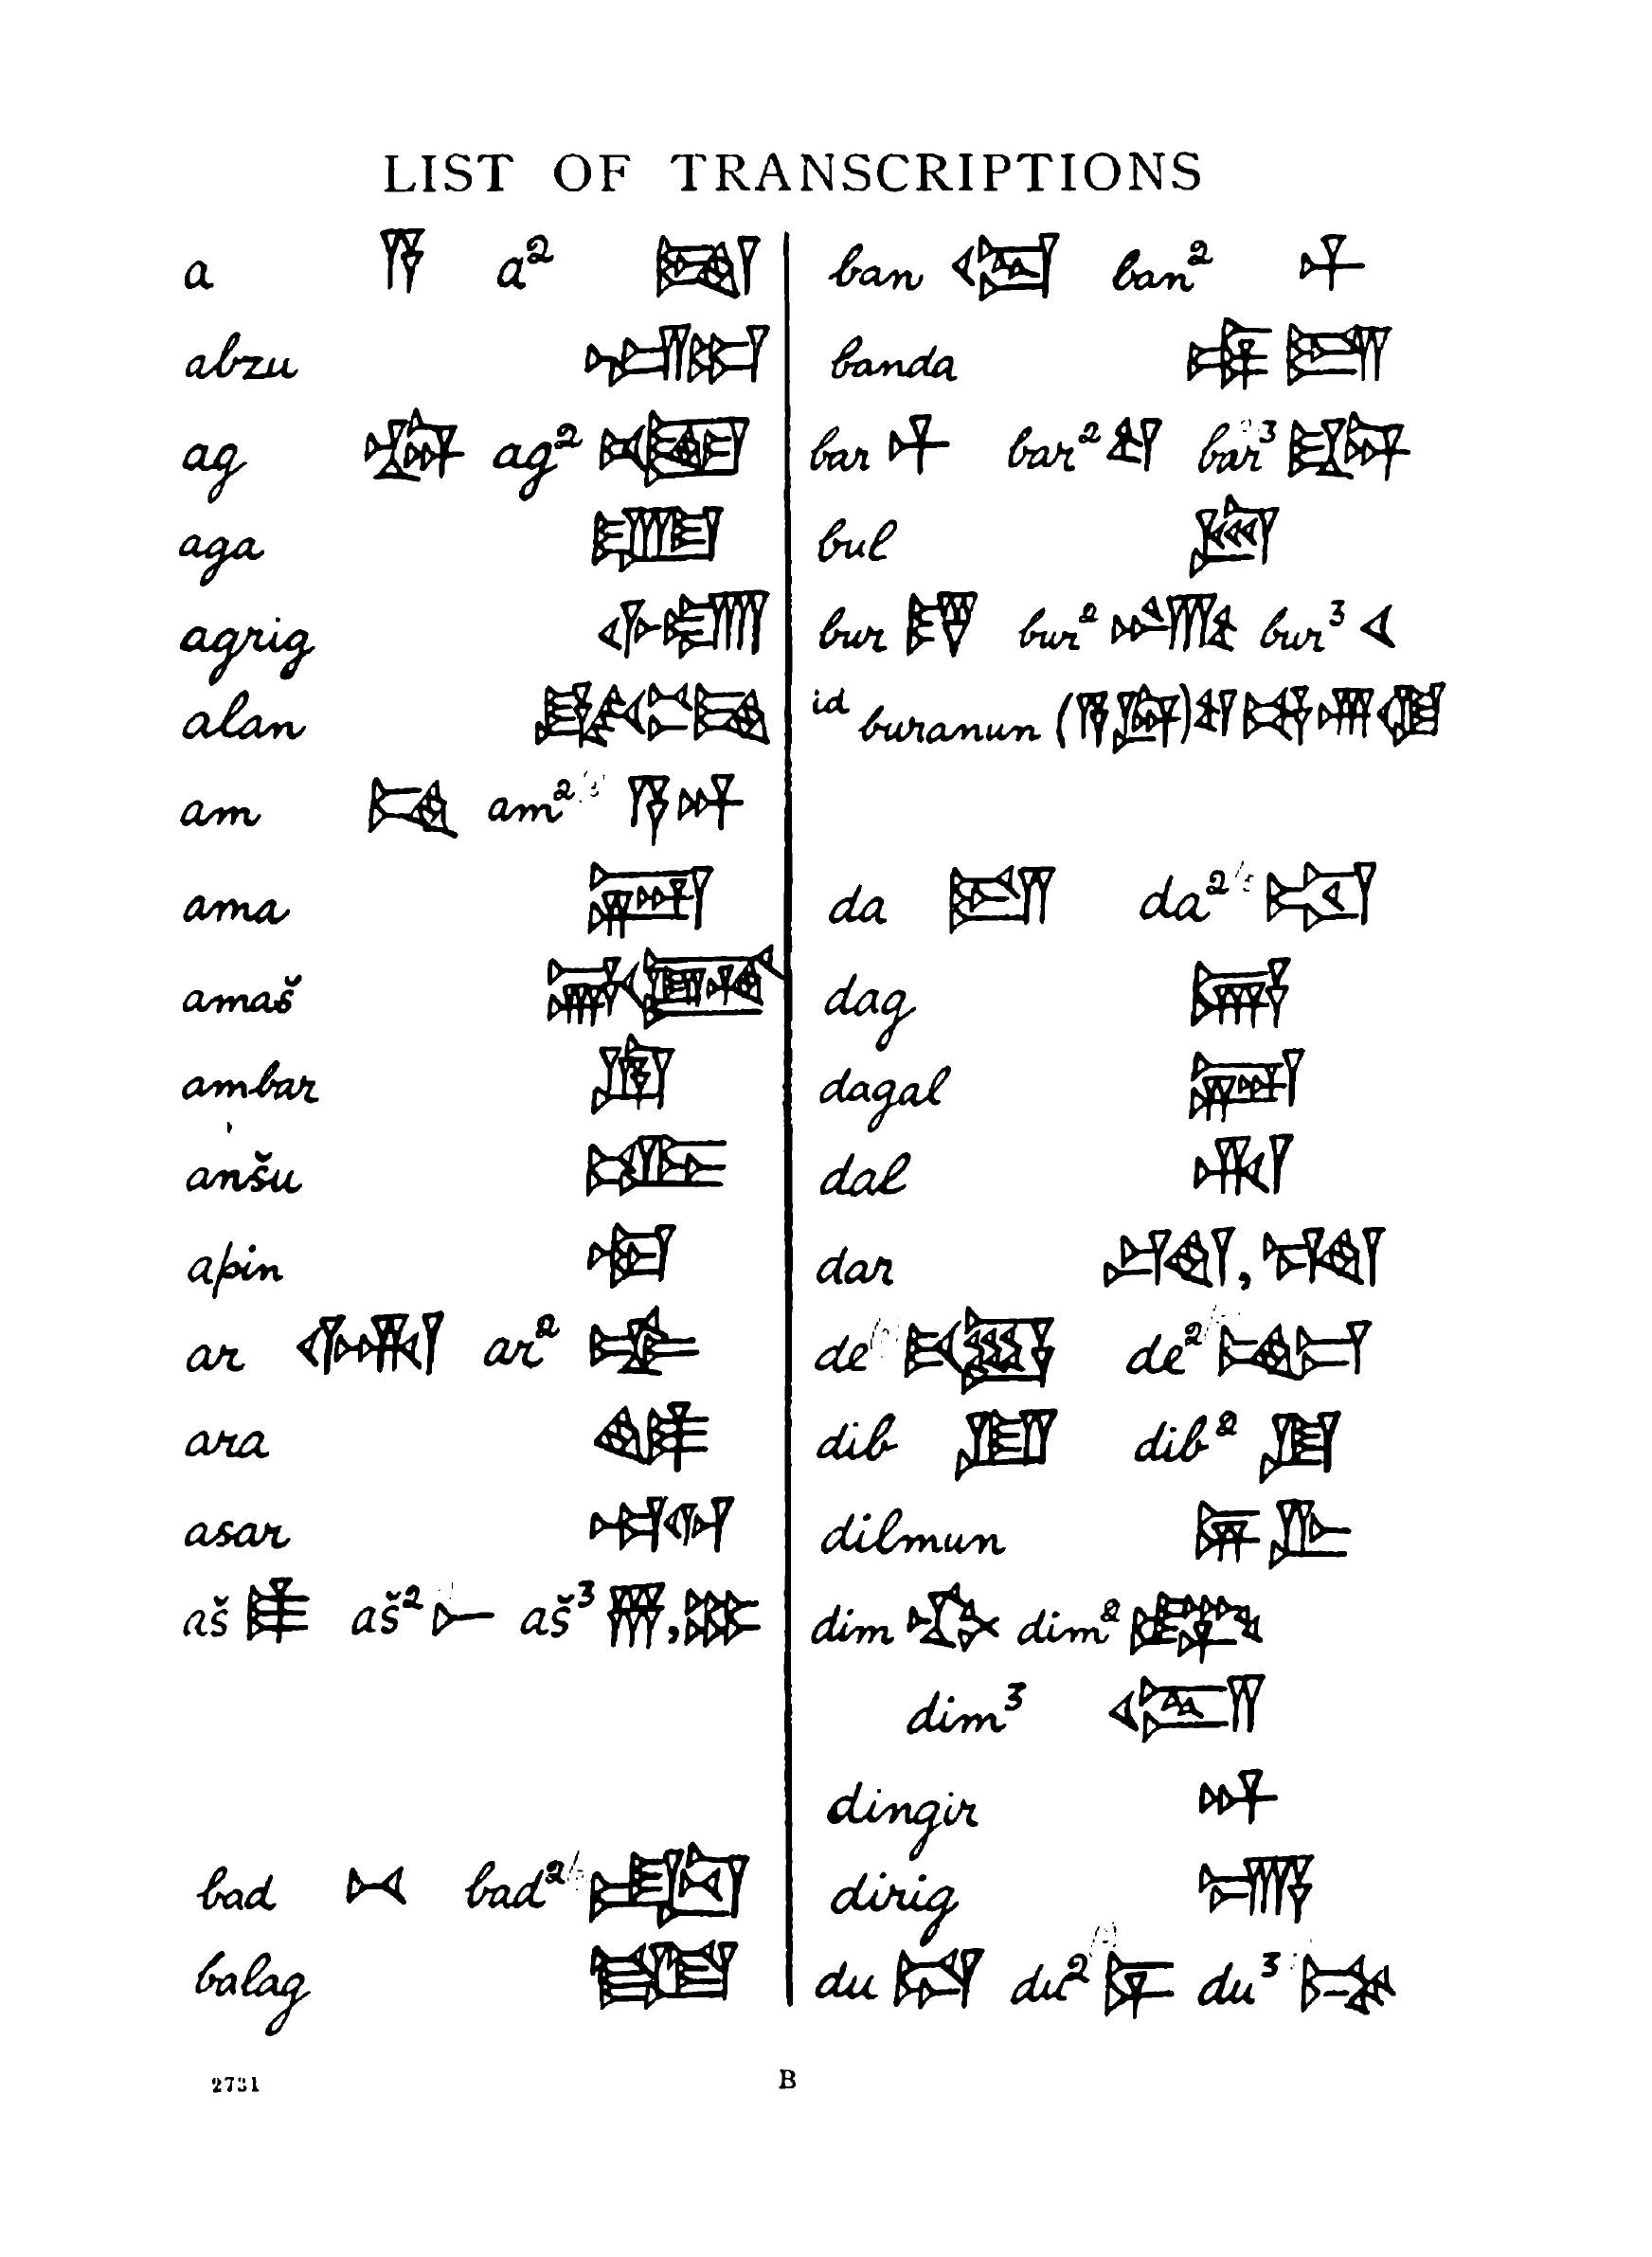 LIST OF TRANSCRIPTIONS
a 𒀀 a² 𒀉
abzu 𒍪𒀊
ag 𒀝 ag² 𒉘
aga
agrig 𒅆𒁾
alan 𒀩
am 𒄠 am² 𒀀𒀭
ama 𒂼
amaš
ambar 𒆹
anšu 𒀲
apin 𒀳
ar 𒅈 ar² 𒌒
ara
asar
aš 𒀾 aš² 𒀸 aš³ 𒐋
bad 𒁁 bad² 𒂦
balag 𒁔
ban 𒉼 ban² 𒁇
banda 𒌉𒁕
bar 𒁇 bar² 𒌓 bar³ 𒁈
bul
bur 𒁓 bur² bur³ 𒌋
id buranun (𒀀𒇉)𒌓𒄒𒉣𒆠
da 𒁕 da² 𒋫
dag 𒁖
dagal 𒂼
dal 𒊑
dar 𒁯
de de²
dib dib²
dilmun
dim 𒁴 dim² 𒁶
dim³
dingir 𒀭
dirig 𒋛𒀀
du 𒁺 du² 𒆕 du³ 𒌅
2731 B